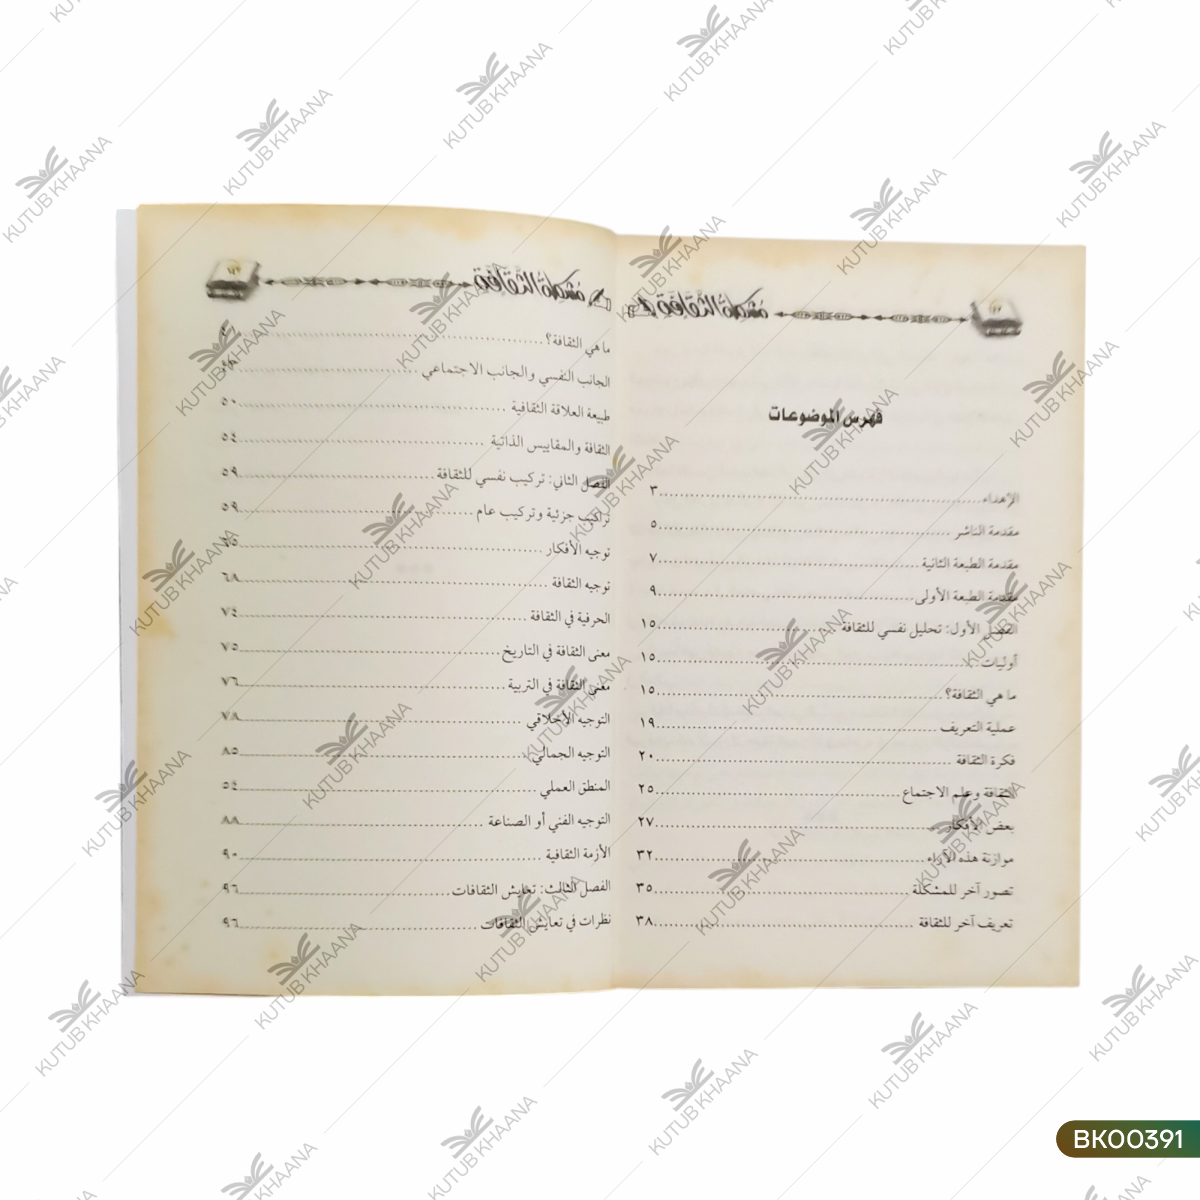 مشكلة الثقافة
فهرس الموضوعات
الإهداء ٣
مقدمة الناشر ٥
مقدمة الطبعة الثانية ٧
مقدمة الطبعة الأولى ٩
الفصل الأول: تحليل نفسي للثقافة ١٥
أوليات ١٥
ما هي الثقافة؟ ١٥
عملية التعريف ١٩
فكرة الثقافة ٢٠
الثقافة وعلم الاجتماع ٢٥
بعض الأفكار ٢٧
موازنة هذه الآراء ٣٢
تصور آخر للمشكلة ٣٥
تعريف آخر للثقافة ٣٨
مشكلة الثقافة
ما هي الثقافة؟
الجانب النفسي والجانب الاجتماعي
طبيعة العلاقة الثقافية ٥٠
الثقافة والمقاييس الذاتية ٥٤
الفصل الثاني: تركيب نفسي للثقافة ٥٩
تراكيب جزئية وتركيب عام ٥٩
توجيه الأفكار
توجيه الثقافة ٦٨
الحرفية في الثقافة ٧٤
معنى الثقافة في التاريخ ٧٥
معنى الثقافة في التربية ٧٦
التوجيه الأخلاقي ٧٨
التوجيه الجمالي ٨٥
المنطق العملي ٥٤
التوجيه الفني أو الصناعة ٨٨
الأزمة الثقافية ٩٠
الفصل الثالث: تعايش الثقافات ٩٦
نظرات في تعايش الثقافات ٩٦
KUTUB KHAANA
BK00391